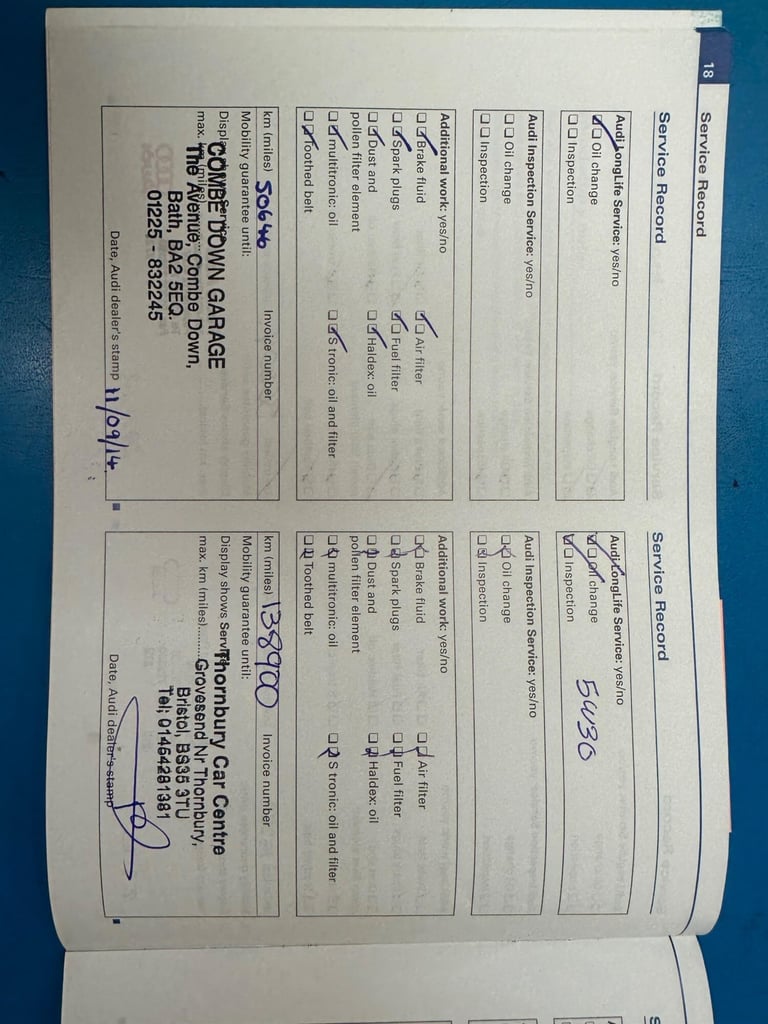 18
Service Record
Service Record
Audi LongLife Service: yes/no
Oil change
Inspection
Audi Inspection Service: yes/no
Oil change
Inspection
Additional work: yes/no
Brake fluid Air filter
Spark plugs Fuel filter
Dust and Haldex: oil
pollen filter element
multitronic: oil S tronic: oil and filter
Toothed belt
km (miles) 50646 Invoice number
Mobility guarantee until:
COMBE DOWN GARAGE
The Avenue, Combe Down,
Bath, BA2 5EQ.
01225 - 832245
Date, Audi dealer's stamp 11/09/14
Service Record
Audi LongLife Service: yes/no
Oil change 5W30
Inspection
Audi Inspection Service: yes/no
Oil change
Inspection
Additional work: yes/no
Brake fluid Air filter
Spark plugs Fuel filter
Dust and Haldex: oil
pollen filter element
multitronic: oil S tronic: oil and filter
Toothed belt
km (miles) 138900 Invoice number
Mobility guarantee until:
Display shows
max. km (miles)
Thornbury Car Centre
Grovesend Nr Thornbury,
Bristol, BS35 3TU
Tel: 01454281381
Date, Audi dealer's stamp